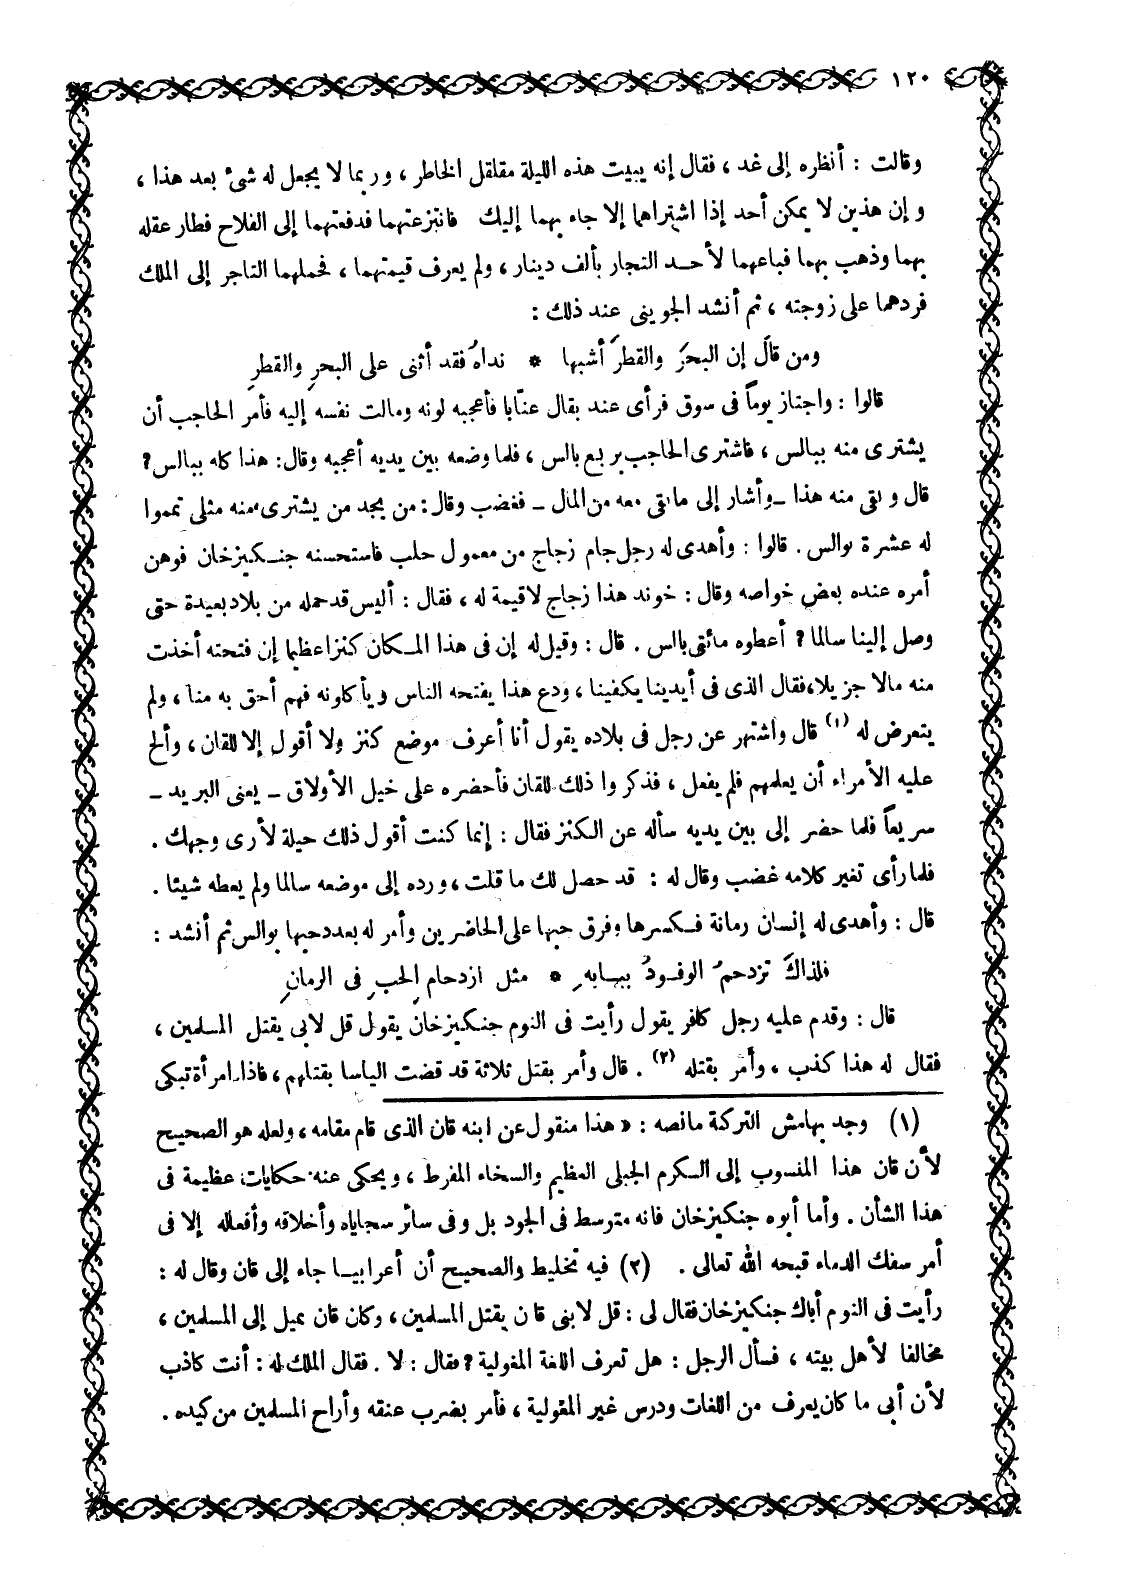 ١٢٠
وقالت : أنظره إلى غد ، فقال إنه يبيت هذه الليلة مقلقل الخاطر ، وربما لا يجعل له شئ بعد هذا ،
وإن هذين لا يمكن أحد إذا اشتراهما إلا جاء بهما إليك فانتزعتهما فدفعتهما إلى الفلاح فطار عقله
بهما وذهب بهما فباعهما لأحد التجار بألف دينار ، ولم يعرف قيمتهما ، فحملهما التاجر إلى الملك
فردهما على زوجته ، ثم أنشد الجوينى عند ذلك :
ومن قالَ إن البحرَ والقطرَ أشبها * نداهُ فقد أثنى على البحرِ والقطرِ
قالوا : واجتاز يوماً فى سوق فرأى عند بقال عنّابا فأعجبه لونه ومالت نفسه إليه فأمر الحاجب أن
يشترى منه ببالس ، فاشترى الحاجب بربع بالس ، فلما وضعه بين يديه أعجبه وقال : هذا كله ببالس ؟
قال وبقى منه هذا ـ وأشار إلى ما بقى معه من المال ـ فغضب وقال : من يجد من يشترى منه مثلى تمموا
له عشرة بوالس . قالوا : وأهدى له رجل جام زجاج من معمول حلب فاستحسنه جنكيزخان فوهن
أمره عنده بعض خواصه وقال : خوند هذا زجاج لا قيمة له ، فقال : أليس قد حمله من بلاد بعيدة حتى
وصل إلينا سالما ؟ أعطوه مائتى بالس . قال : وقيل له إن فى هذا المكان كنزاً عظيما إن فتحته أخذت
منه مالا جزيلا ، فقال الذى فى أيدينا يكفينا ، ودع هذا يفتحه الناس ويأكلونه فهم أحق به منا ، ولم
يتعرض له (١) قال واشتهر عن رجل فى بلاده يقول أنا أعرف موضع كنز ولا أقول إلا للقان ، وألح
عليه الأمراء أن يعلمهم فلم يفعل ، فذكروا ذلك للقان فأحضره على خيل الأولاق ـ يعنى البريد ـ
سريعاً فلما حضر إلى بين يديه سأله عن الكنز فقال : إنما كنت أقول ذلك حيلة لأرى وجهك .
فلما رأى تغير كلامه غضب وقال له : قد حصل لك ما قلت ، ورده إلى موضعه سالما ولم يعطه شيئا .
قال : وأهدى له إنسان رمانة فكسرها وفرق حبها على الحاضرين وأمر له بعدد حبها بوالس ثم أنشد :
فلذاكَ تزدحمُ الوفودُ ببابهِ * مثل ازدحام الحبِ فى الرمانِ
قال : وقدم عليه رجل كافر يقول رأيت فى النوم جنكيزخان يقول قل لابى يقتل المسلمين ،
فقال له هذا كذب ، وأمر بقتله (٢) . قال وأمر بقتل ثلاثة قد قضت الياسا بقتلهم ، فاذا امرأة تبكى
(١) وجد بهامش التركة مانصه : « هذا منقول عن ابنه قان الذى قام مقامه ، ولعله هو الصحيح
لأن قان هذا المنسوب إلى الكرم الجبلى العظيم والسخاء المفرط ، ويحكى عنه حكايات عظيمة فى
هذا الشأن . وأما أبوه جنكيزخان فانه متوسط فى الجود بل وفى سائر سجاياه وأخلاقه وأفعاله إلا فى
أمر سفك الدماء قبحه الله تعالى . (٢) فيه تخليط والصحيح أن أعرابيا جاء إلى قان وقال له :
رأيت فى النوم أباك جنكيزخان فقال لى : قل لابنى قان يقتل المسلمين ، وكان قان يميل إلى المسلمين ،
مخالفا لأهل بيته ، فسأل الرجل : هل تعرف اللغة المغولية ؟ فقال : لا . فقال الملك له : أنت كاذب
لأن أبى ما كان يعرف من اللغات ودرس غير المغولية ، فأمر بضرب عنقه وأراح المسلمين من كيده .